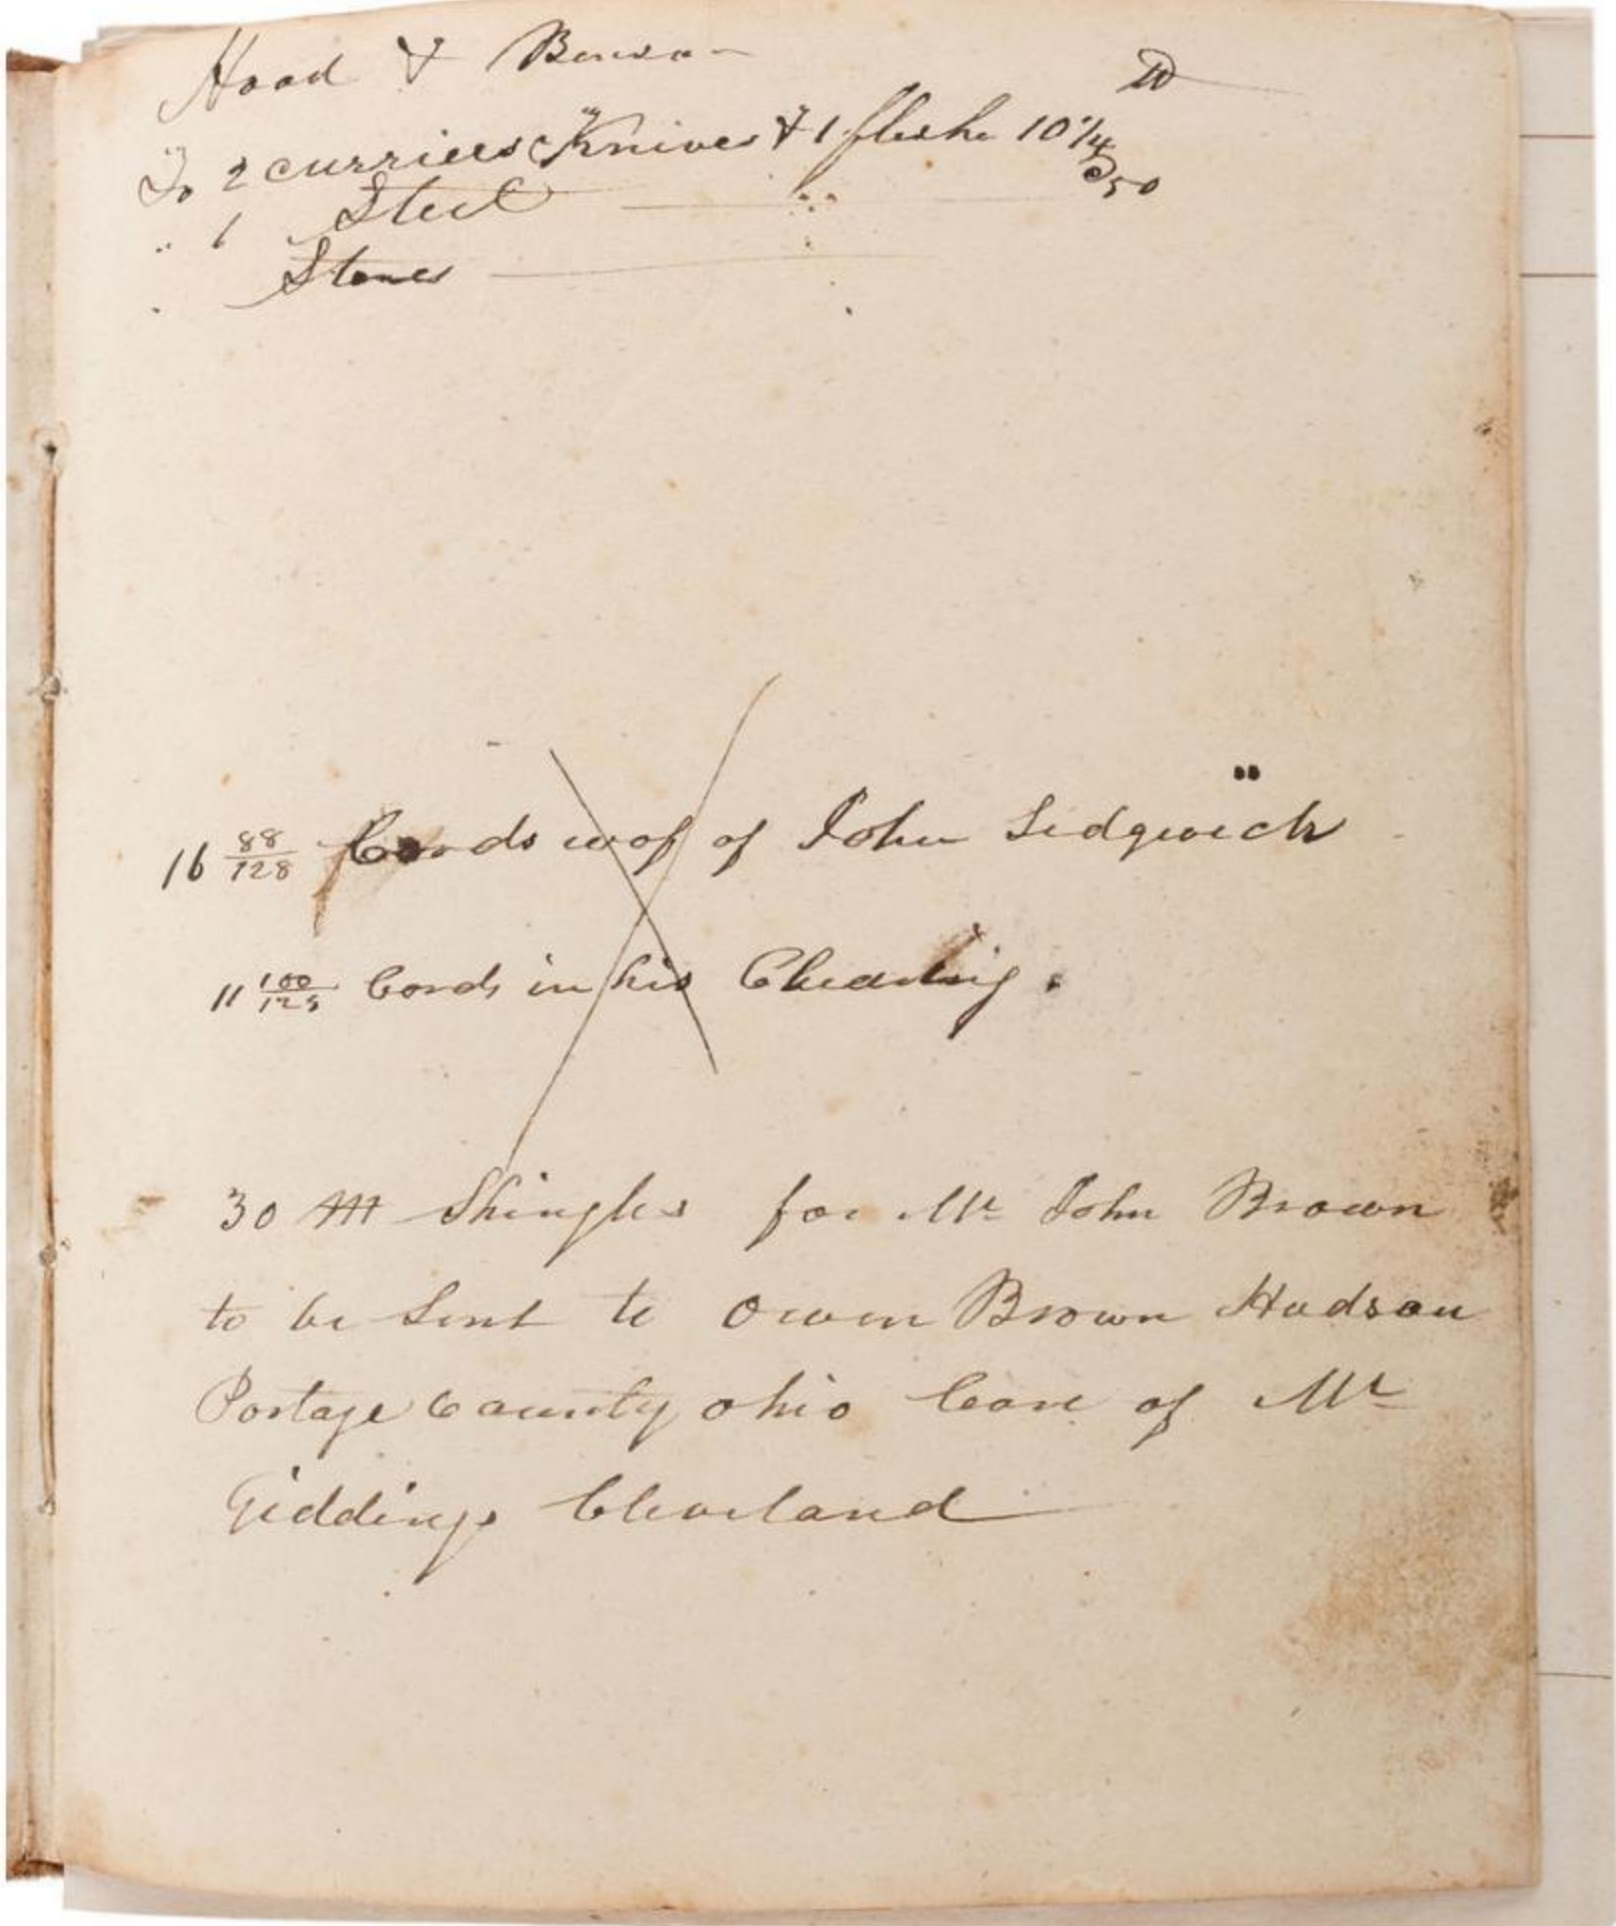 Hood &
To 2 curriers Knives & 1 fleshe 10 1/4
" 1 Steel 50
Stones
16 88/128 Cords of John Sedgwick
11 100/128 Cords in his Clearing.
30 M Shingles for Mr John Brown
to be Sent to Owen Brown Hudson
Portage County ohio Care of Mr
Giddings Cleveland